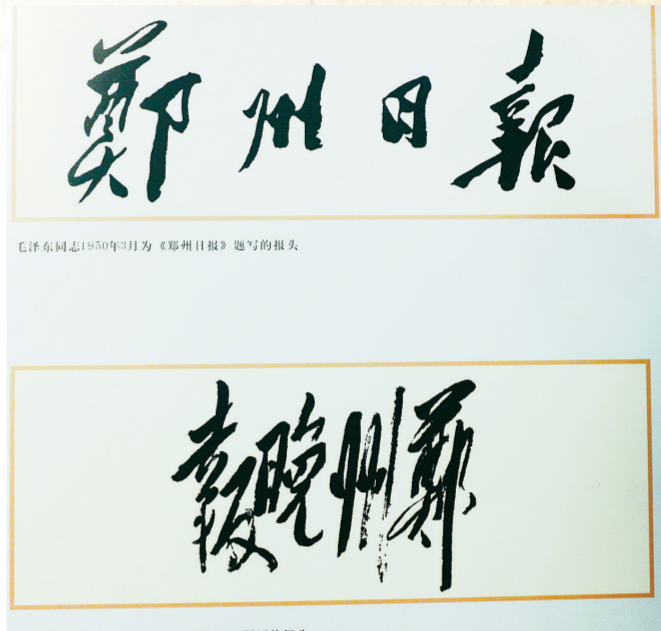 鄭州日報
毛泽东同志1950年3月为《郑州日报》题写的报头
鄭州晚報